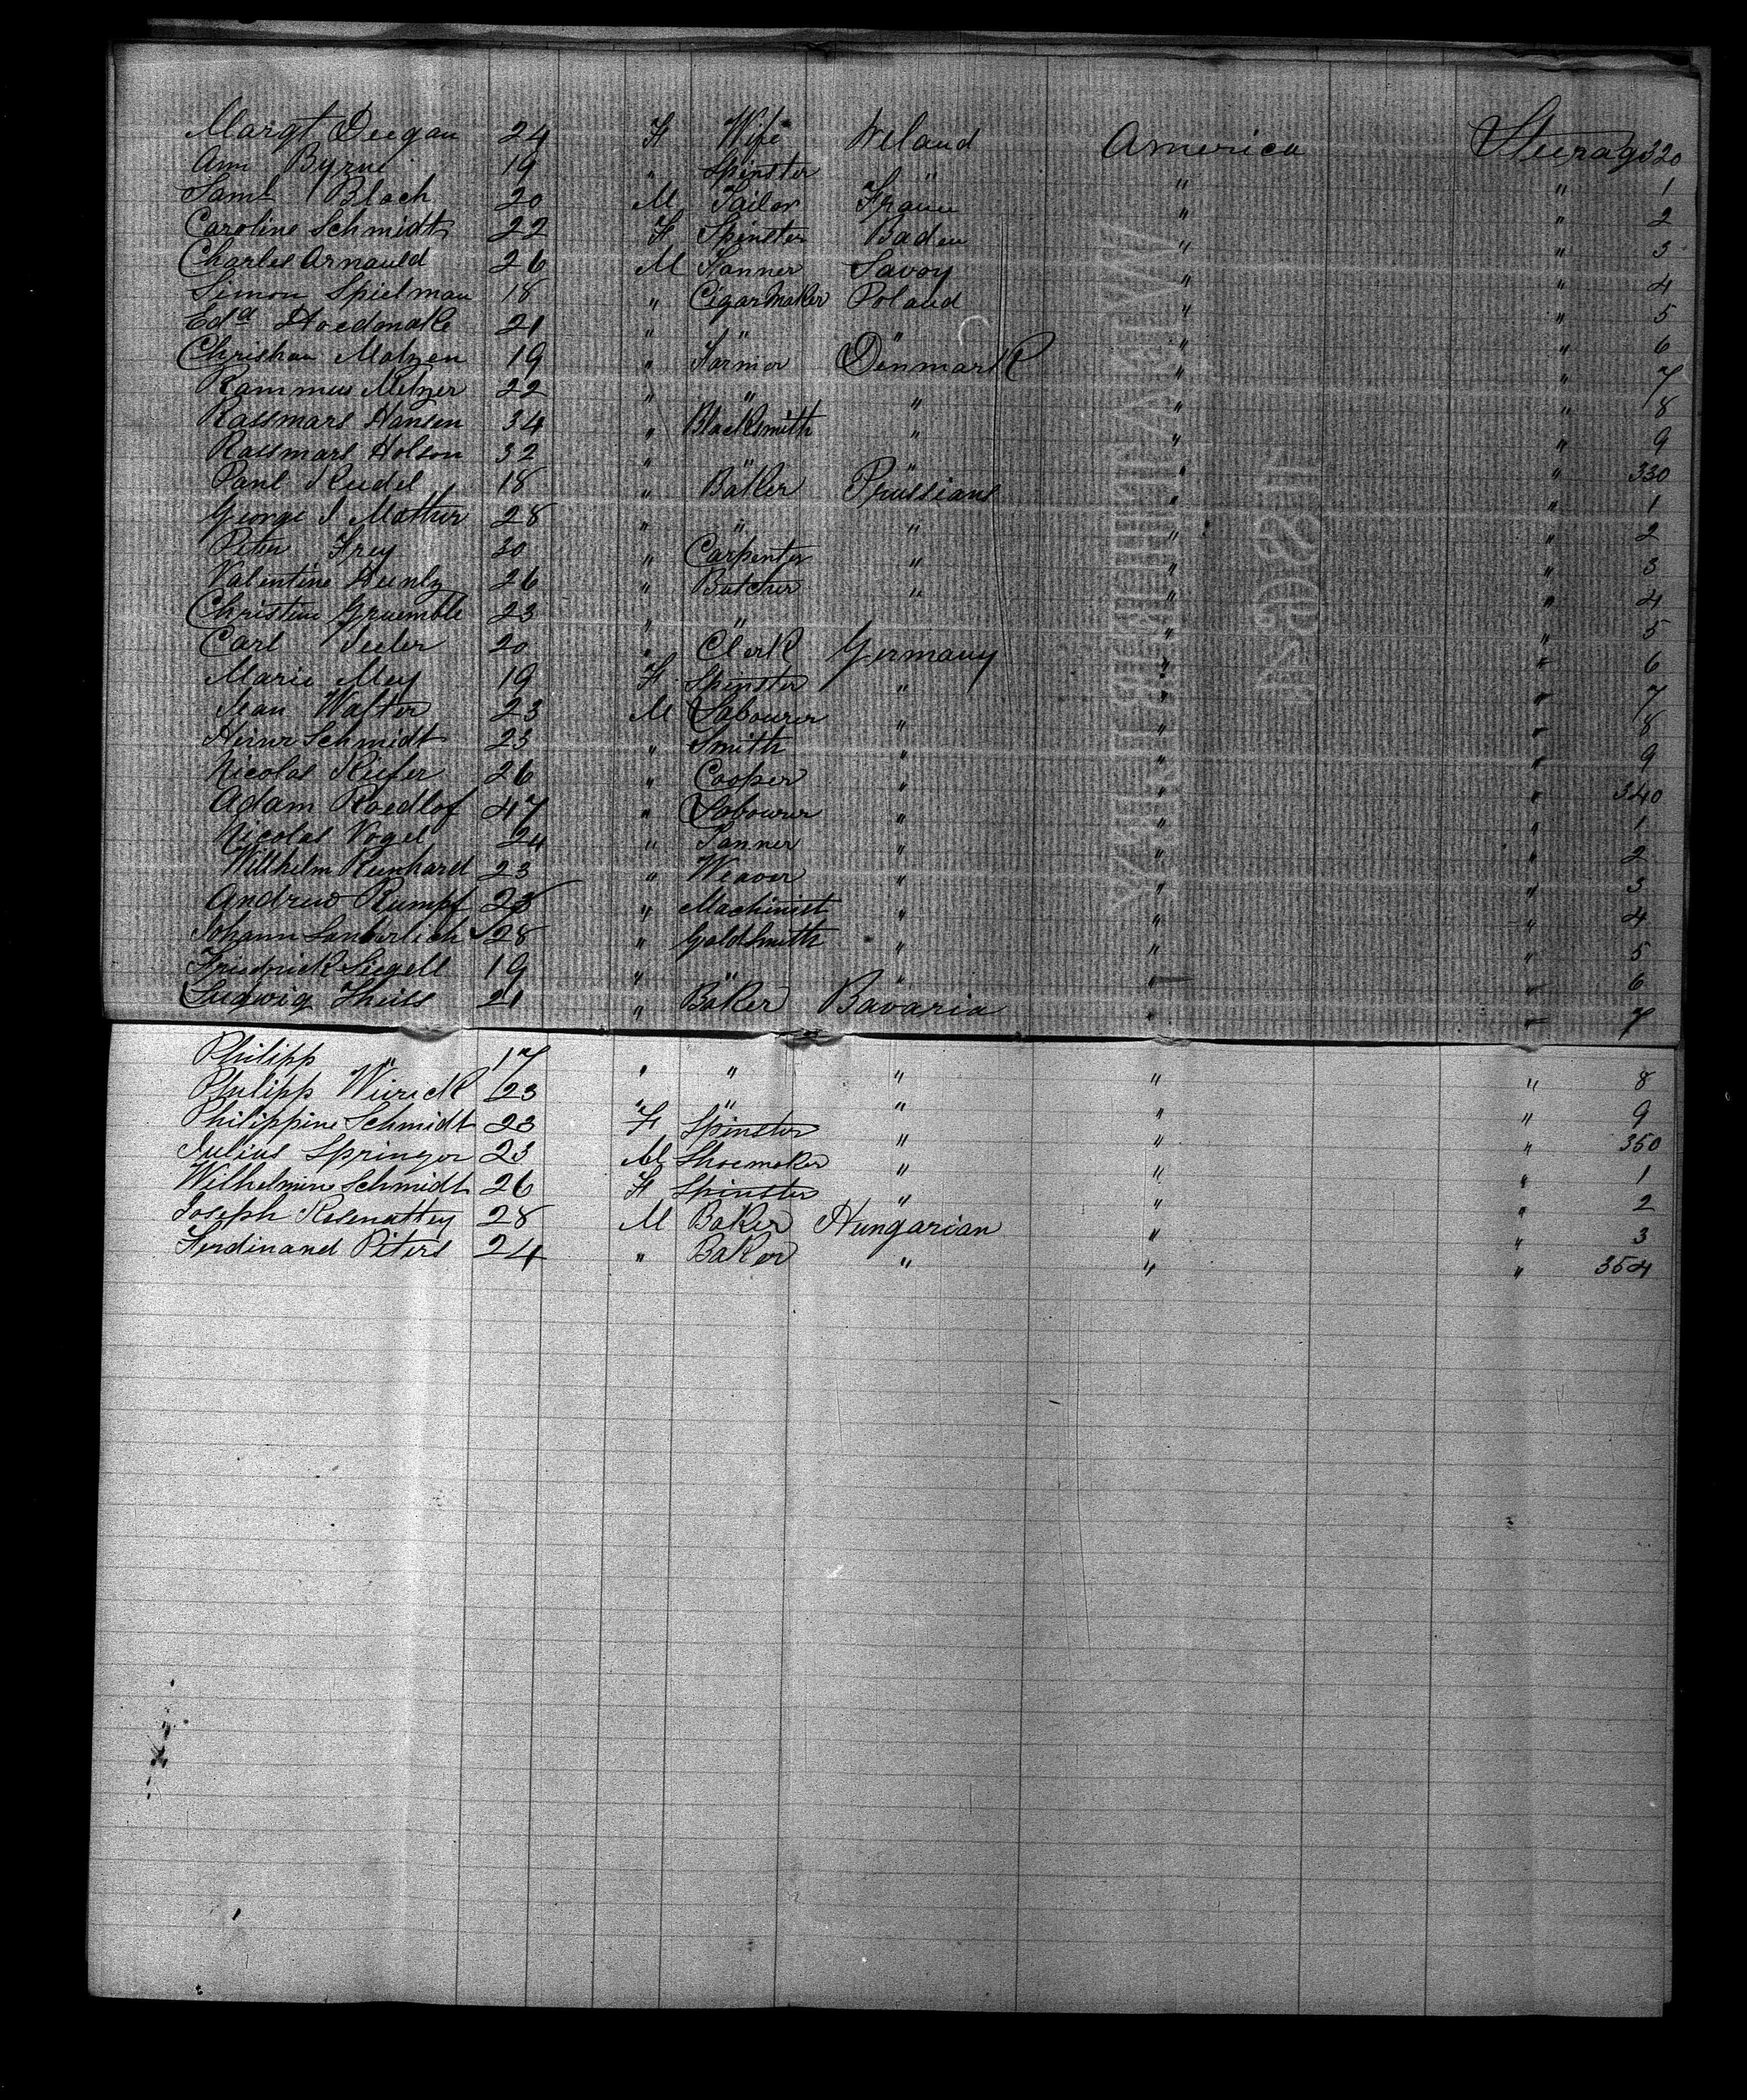 Margt Deegan 24 F Wife Ireland America Steerage 320
Ann Byrne 19 " Spinster " " " 1
Saml Bloch 20 M Tailor France " " 2
Caroline Schmidt 22 F Spinster Baden " " 3
Charles Arnauld 26 M Tanner Savoy " " 4
Simon Spielman 18 " Cigar Maker Poland " " 5
Edd 21 " " " " " 6
Christian Matzen 19 " Farmer Denmark " " 7
Rammus Metzer 22 " " " " " 8
Rassmars Hansen 34 " Blacksmith " " " 9
Rassmars Holson 32 " " " " " 330
Paul Riedel 18 " Baker Prussians " " 1
George J Mather 28 " " " " " 2
Peter Frey 30 " Carpenter " " " 3
Valentine 26 " Butcher " " " 4
Christian Gruemble 23 " " " " " 5
Carl Seeler 20 " Clerk Germany " " 6
Marie Mey 19 F Spinster " " " 7
Jean Walter 23 M Labourer " " " 8
Heinr Schmidt 23 " Smith " " " 9
Nicolas Kiefer 26 " Cooper " " " 340
Adam Roedlof 47 " Labourer " " " 1
Nicolas Vogel 24 " Tanner " " " 2
Willhelm Reinhard 23 " Weaver " " " 3
Andrew Rumpf 23 " Machinist " " " 4
Johann Lauberlich 28 " Goldsmith " " " 5
Friedrick Siegell 19 " " " " " 6
Ludwig Theiss 21 " Baker Bavaria " " 7
Philipp " 17 " " " " " 8
Philipp Wuirck 23 " " " " " 9
Philippine Schmidt 23 F Spinster " " " 350
Julius Springer 23 M Shoemaker " " " 1
Wilhelmine Schmidt 26 F Spinster " " " 2
Joseph Rosenattey 28 M Baker Hungarian " " 3
Ferdinand Piters 24 " Baker " " " 354